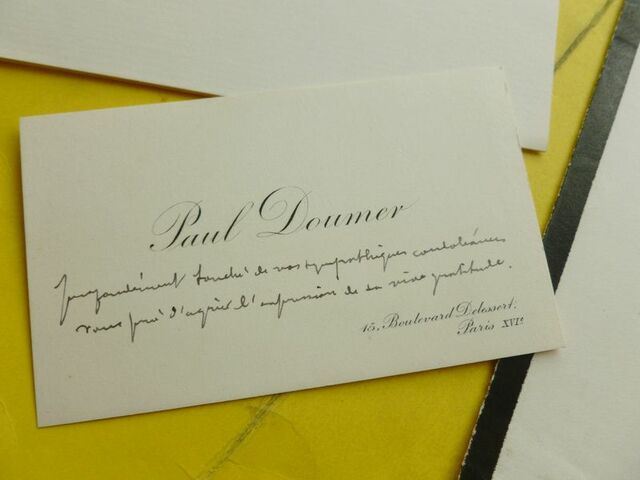 Paul Doumer
profondément touché de vos sympathiques condoléances
vous prie d'agréer l'expression de sa vive gratitude.
15, Boulevard Delessert.
Paris XVIe